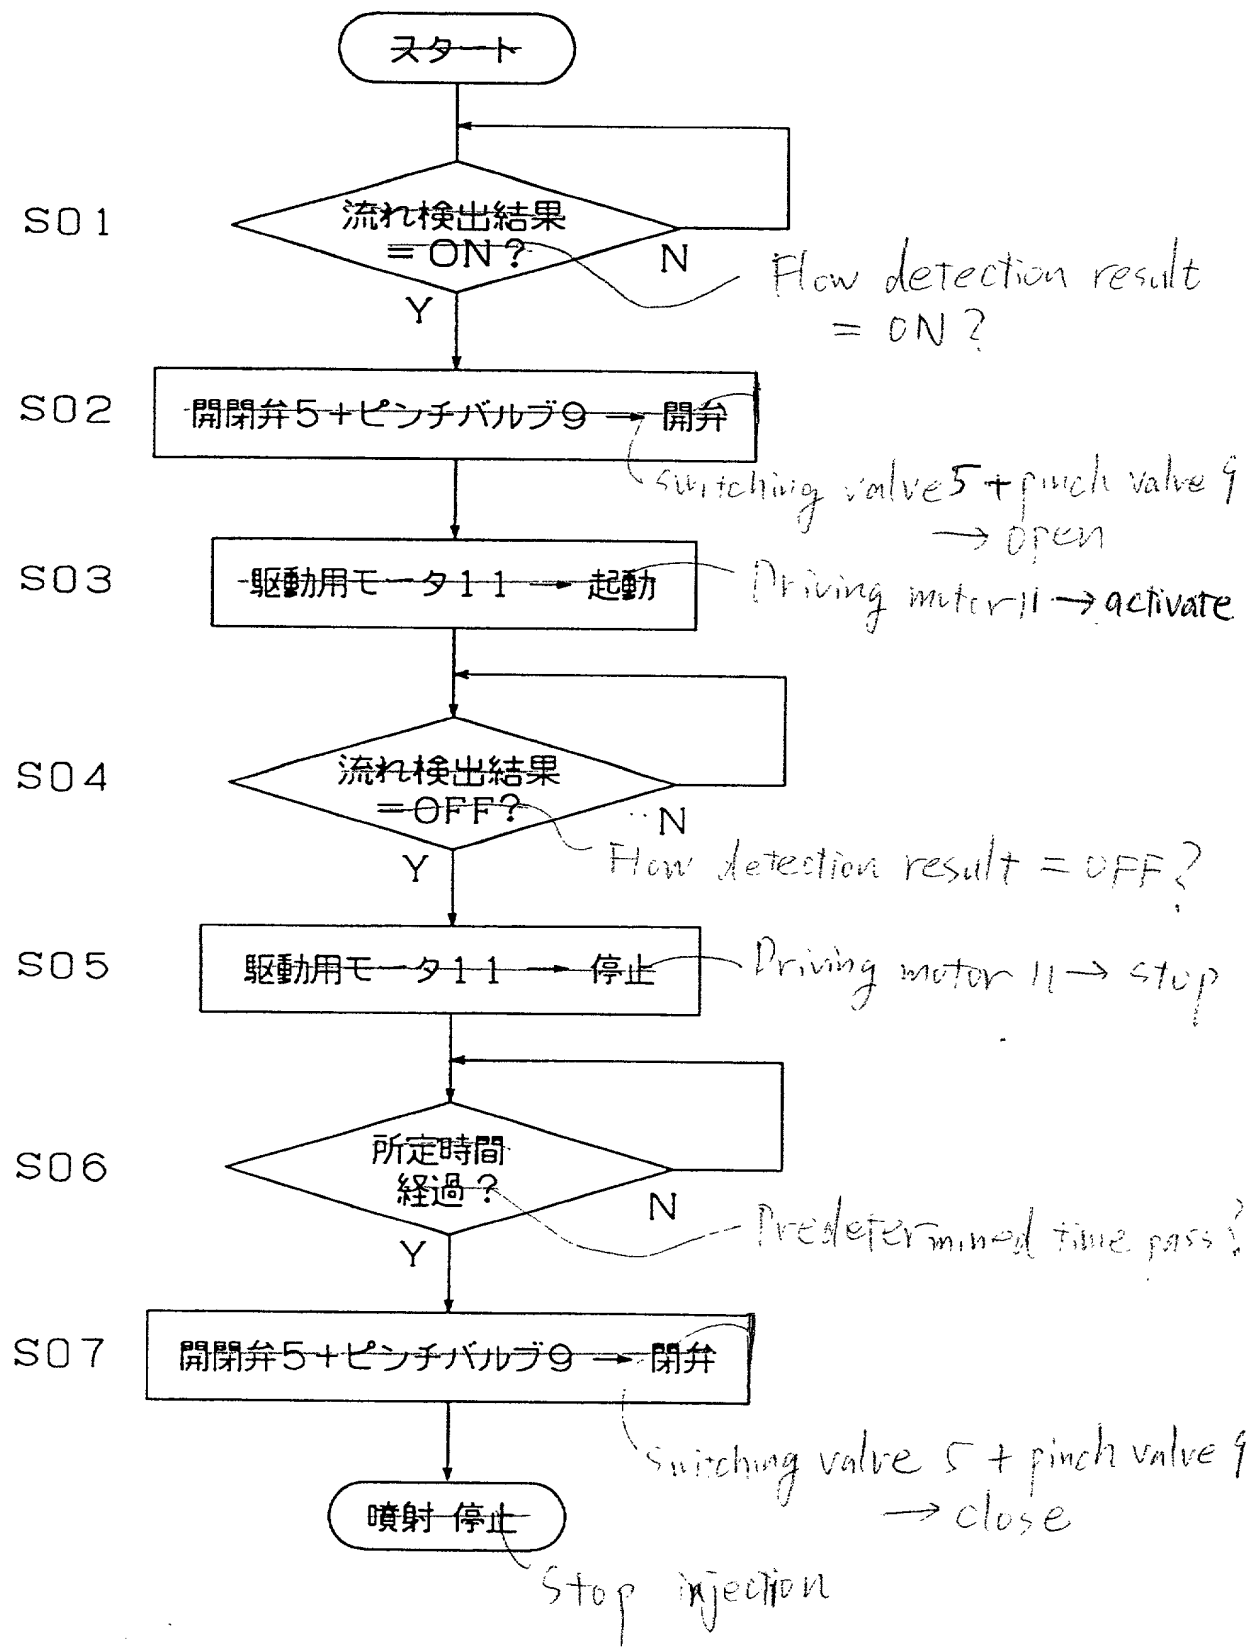 スタート
S01
流れ検出結果
＝ON？
N
Flow detection result
= ON?
Y
S02
開閉弁5＋ピンチバルブ9 → 開弁
switching valve 5 + pinch valve 9
→ open
S03
駆動用モータ11 → 起動
Driving motor 11 → activate
S04
流れ検出結果
＝OFF？
N
Flow detection result = OFF?
Y
S05
駆動用モータ11 → 停止
Driving motor 11 → stop
S06
所定時間
経過？
N
Predetermined time pass?
Y
S07
開閉弁5＋ピンチバルブ9 → 閉弁
Switching valve 5 + pinch valve 9
→ close
噴射 停止
Stop injection